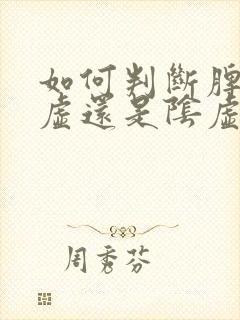 如何判斷脾
虛還是陰虛
周秀芬